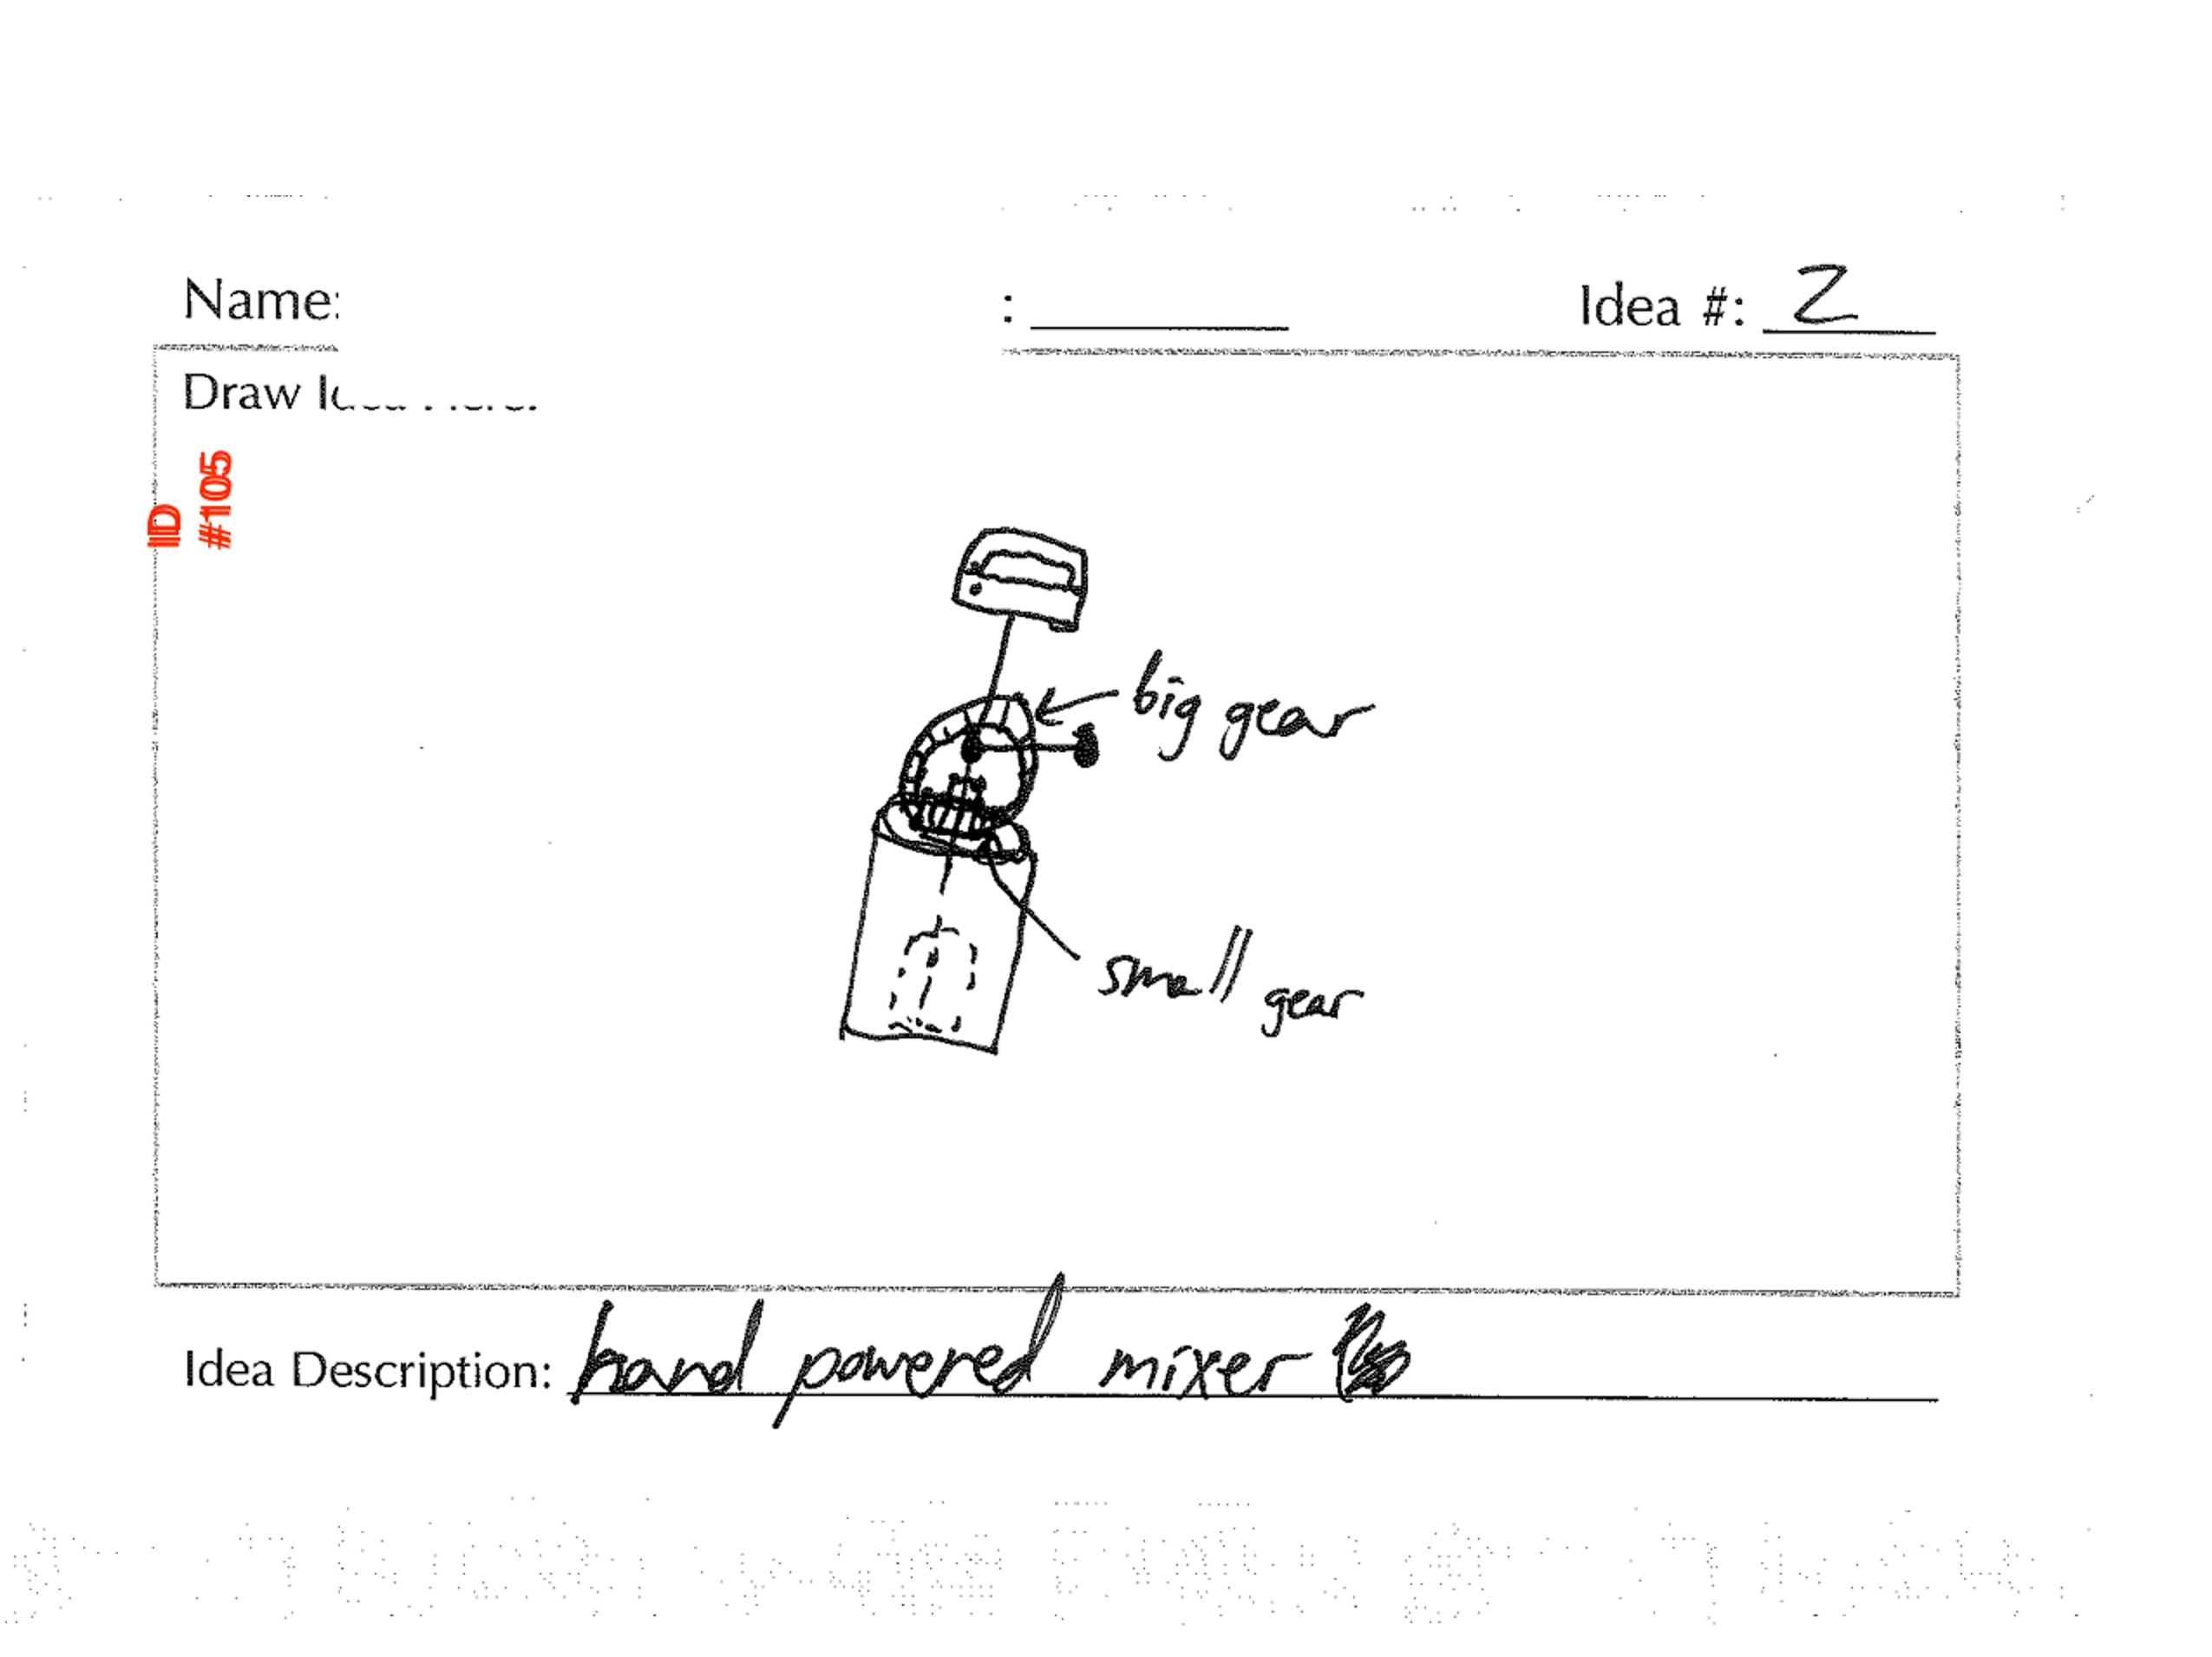 Name:
: Idea #: 2
Draw
ID
#1105
big gear
small gear
Idea Description: hand powered mixer